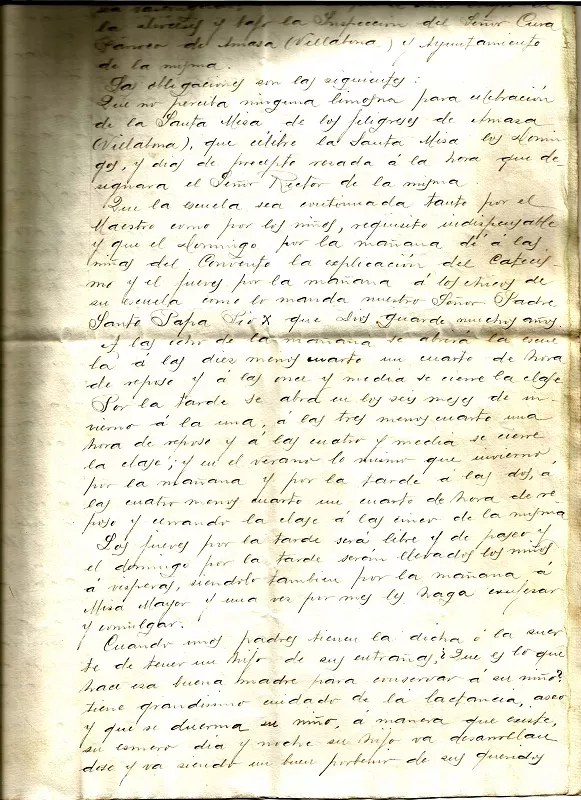 la directa y bajo la Inspección del Señor Cura
Párroco de Amasa (Villabona) y Ayuntamiento
de la misma.
Las obligaciones son las siguientes:
Que no perciba ninguna limosna para celebración
de la Santa Misa de los feligreses de Amasa
(Villabona), que célebre la Santa Misa los Domin-
gos, y días de precepto rezada á la hora que de-
signara el Señor Rector de la misma.
Que la escuela sea continuada tanto por el
Maestro como por los niños, requisito indispensable
y que el Domingo por la mañana dé á las
niñas del Convento la explicación del Catecis
mo y el jueves por la mañana á los chicos de
su escuela como lo manda nuestro Señor Padre
Santo Papa Pio X que Dios guarde muchos años.
A las ocho de la mañana se abrirá la escue
la á las diez menos cuarto un cuarto de hora
de reposo y á las once y media se cierre la clase
Por la tarde se abra en los seis meses de in-
vierno á la una, á las tres menos cuarto una
hora de reposo y á las cuatro y media se cierre
la clase; y en el verano lo mismo que invierno
por la mañana y por la tarde á las dos, á
las cuatro menos cuarto un cuarto de hora de re-
poso y cerrando la clase á las cinco de la misma
Los jueves por la tarde será libre y de paseo y
el domingo por la tarde serán llevados los niños
á vísperas, siendolo tambien por la mañana á
Misa Mayor y una vez por mes les haga confesar
y comulgar.
Cuando unos padres tienen la dicha ó la suer
te de tener un hijo de sus entrañas, ¿Que es lo que
hace esa buena madre para conservar á su niño?
tiene grandísimo cuidado de la lactancia, aseo
y que se duerma su niño, á manera que existe,
su esmero dia y noche su hijo va desarrollan
dose y va siendo un buen portento de sus queridos